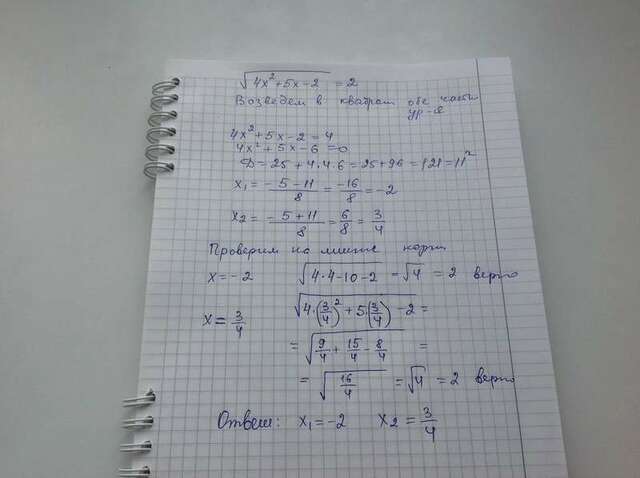 √(4x²+5x-2) = 2
Возведем в квадрат обе части
ур-я
4x²+5x-2=4
4x²+5x-6=0
D=25+4·4·6=25+96=121=11²
x₁= (-5-11)/8 = -16/8 = -2
x₂= (-5+11)/8 = 6/8 = 3/4
Проверим на лишние корни
x=-2 √(4·4-10-2) = √4 = 2 верно
x= 3/4 √(4·(3/4)²+5·(3/4)-2) =
= √(9/4+15/4-8/4) =
= √(16/4) = √4 = 2 верно
Ответ: x₁=-2 x₂= 3/4